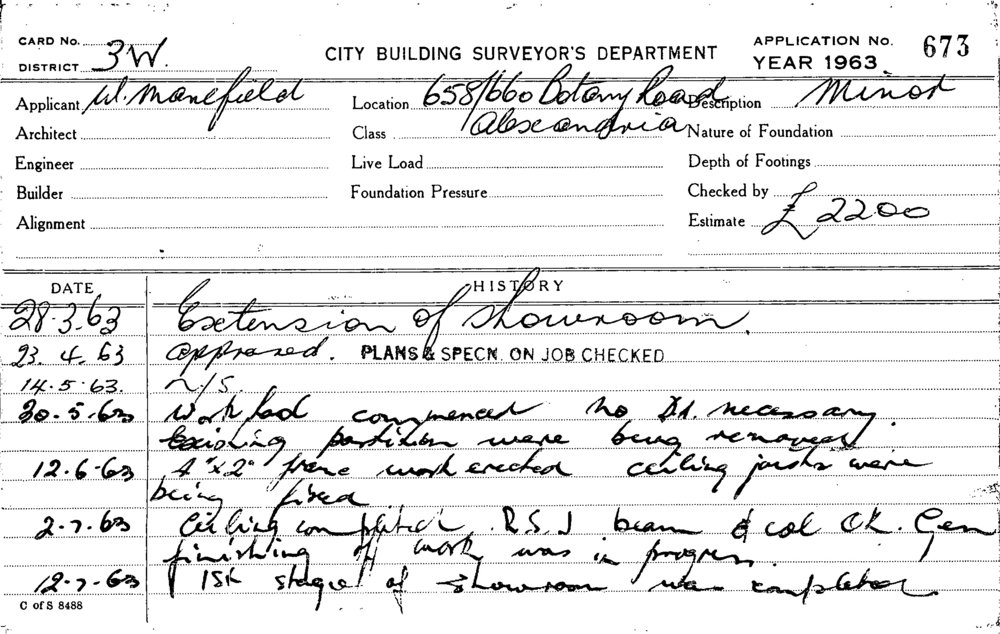 CARD No.
DISTRICT 3W.
CITY BUILDING SURVEYOR'S DEPARTMENT
APPLICATION No. 673
YEAR 1963
Applicant W. Manefield
Location 658/660 Botany Road
Description Minor
Architect
Class Alexandria
Nature of Foundation
Engineer
Live Load
Depth of Footings
Builder
Foundation Pressure
Checked by
Alignment
Estimate £2200
DATE HISTORY
28.3.63 Extension of showroom.
23.4.63 approved. PLANS & SPECN. ON JOB CHECKED
14.5.63. N/S.
30.5.63 Work had commenced no necessary.
Existing partition were being removed.
12.6.63 4"x2" frame work erected ceiling joists were
being fixed
2.7.63 Ceiling completed R.S.J beam & col OK. Gen
finishing of work was in progress.
12.7.63 1st stage of showroom was completed.
C of S 8488